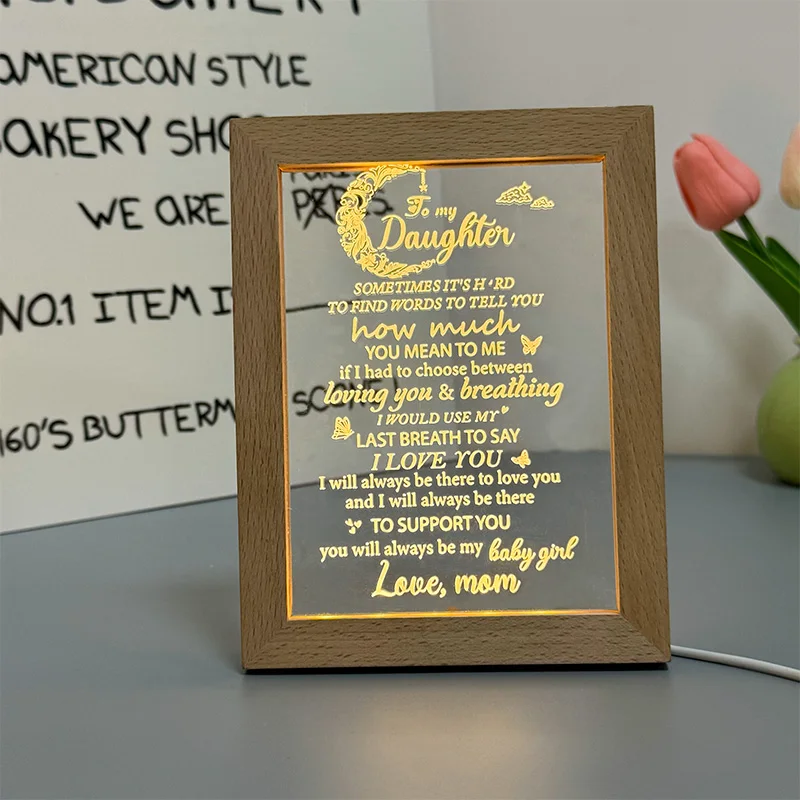 AMERICAN STYLE
BAKERY SHO
WE ARE
NO.1 ITEM I
160'S BUTTERM SCONE!
To my
Daughter
SOMETIMES IT'S H RD
TO FIND WORDS TO TELL YOU
how much
YOU MEAN TO ME
if I had to choose between
loving you & breathing
I WOULD USE MY
LAST BREATH TO SAY
I LOVE YOU
I will always be there to love you
and I will always be there
TO SUPPORT YOU
you will always be my baby girl
Love, mom